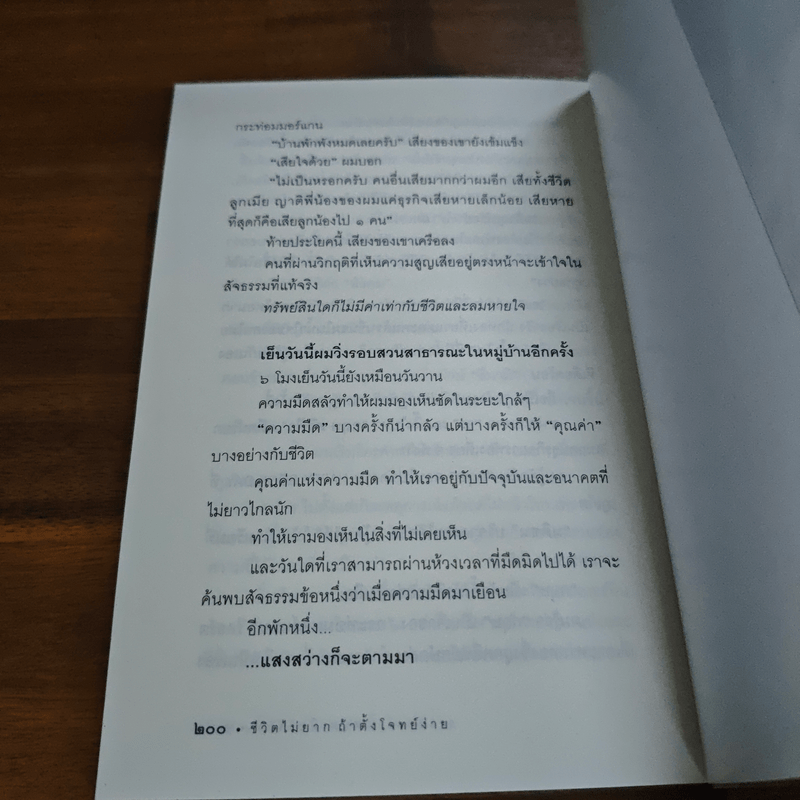 กระท่อมมอร์แกน
"บ้านพักพังหมดเลยครับ" เสียงของเขายังเข้มแข็ง
"เสียใจด้วย" ผมบอก
"ไม่เป็นหรอกครับ คนอื่นเสียมากกว่าผมอีก เสียทั้งชีวิต
ลูกเมีย ญาติพี่น้องของผมแค่ธุรกิจเสียหายเล็กน้อย เสียหาย
ที่สุดก็คือเสียลูกน้องไป ๑ คน"
ท้ายประโยคนี้ เสียงของเขาเครือลง
คนที่ผ่านวิกฤติที่เห็นความสูญเสียอยู่ตรงหน้าจะเข้าใจใน
สัจธรรมที่แท้จริง
ทรัพย์สินใดก็ไม่มีค่าเท่ากับชีวิตและลมหายใจ
เย็นวันนี้ผมวิ่งรอบสวนสาธารณะในหมู่บ้านอีกครั้ง
๖ โมงเย็นวันนี้ยังเหมือนวันวาน
ความมืดสลัวทำให้ผมมองเห็นชัดในระยะใกล้ๆ
"ความมืด" บางครั้งก็น่ากลัว แต่บางครั้งก็ให้ "คุณค่า"
บางอย่างกับชีวิต
คุณค่าแห่งความมืด ทำให้เราอยู่กับปัจจุบันและอนาคตที่
ไม่ยาวไกลนัก
ทำให้เรามองเห็นในสิ่งที่ไม่เคยเห็น
และวันใดที่เราสามารถผ่านห้วงเวลาที่มืดมิดไปได้ เราจะ
ค้นพบสัจธรรมข้อหนึ่งว่าเมื่อความมืดมาเยือน
อีกพักหนึ่ง...
...แสงสว่างก็จะตามมา
๒๐๐ • ชีวิตไม่ยาก ถ้าตั้งโจทย์ง่าย